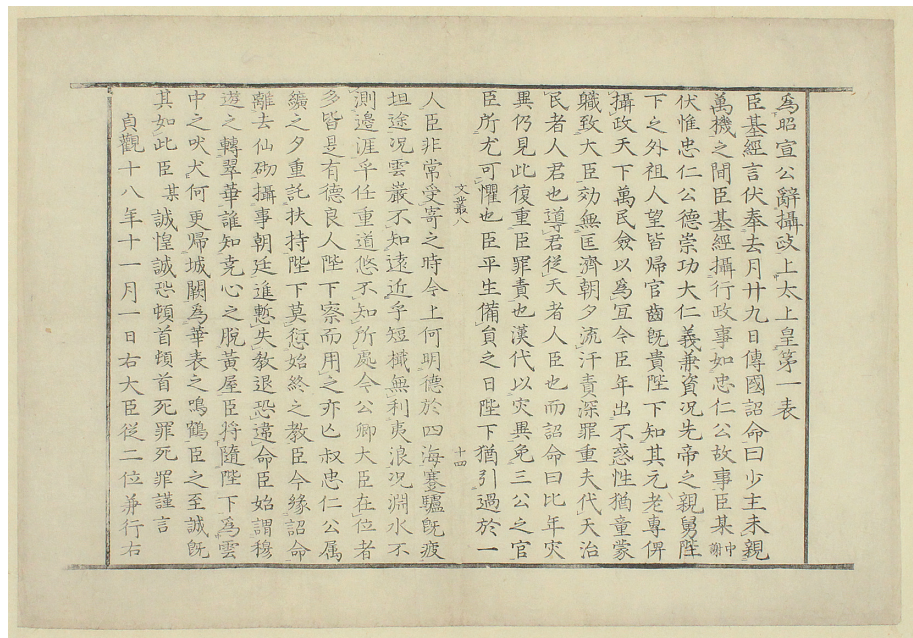 爲昭宣公辭攝政上太上皇第一表
臣基經言伏奉去月廿九日傳國詔命曰少主未親
萬機之間臣基經攝行政事如忠仁公故事臣某中謝
伏惟忠仁公德崇功大仁義兼資況先帝之親舅陛
下之外祖人望皆帰官齒既貴陛下知其元老專俾
攝政天下萬民僉以爲宜今臣年出不惑性猶童蒙
職致大臣効無匡濟朝夕流汗責深罪重夫代天治
民者人君也導君從天者人臣也而詔命曰比年灾
異仍見此復重臣罪責也漢代以灾異免三公之官
臣所尤可懼也臣平生備貟之日陛下猶引過於一
文叢八
十四
人臣非常受寄之時今上何明德於四海蹇驢既疲
坦途況雲巌不知遠近乎短檝無利夷浪況淵水不
測邊涯乎任重道悠不知所處今公卿大臣在位者
多皆是有德良人陛下察而用之亦亾叔忠仁公属
纊之夕重託扶持陛下莫愆始終之教臣今緣詔命
離去仙砌攝事朝廷進慙失教退恐違命臣始謂穆
遊之轉翠華誰知尭心之脫黃屋臣将隨陛下爲雲
中之吠犬何更帰城闕爲華表之鳴鶴臣之至誠既
其如此臣某誠惶誠恐頓首頓首死罪死罪謹言
貞觀十八年十一月一日右大臣從二位兼行右